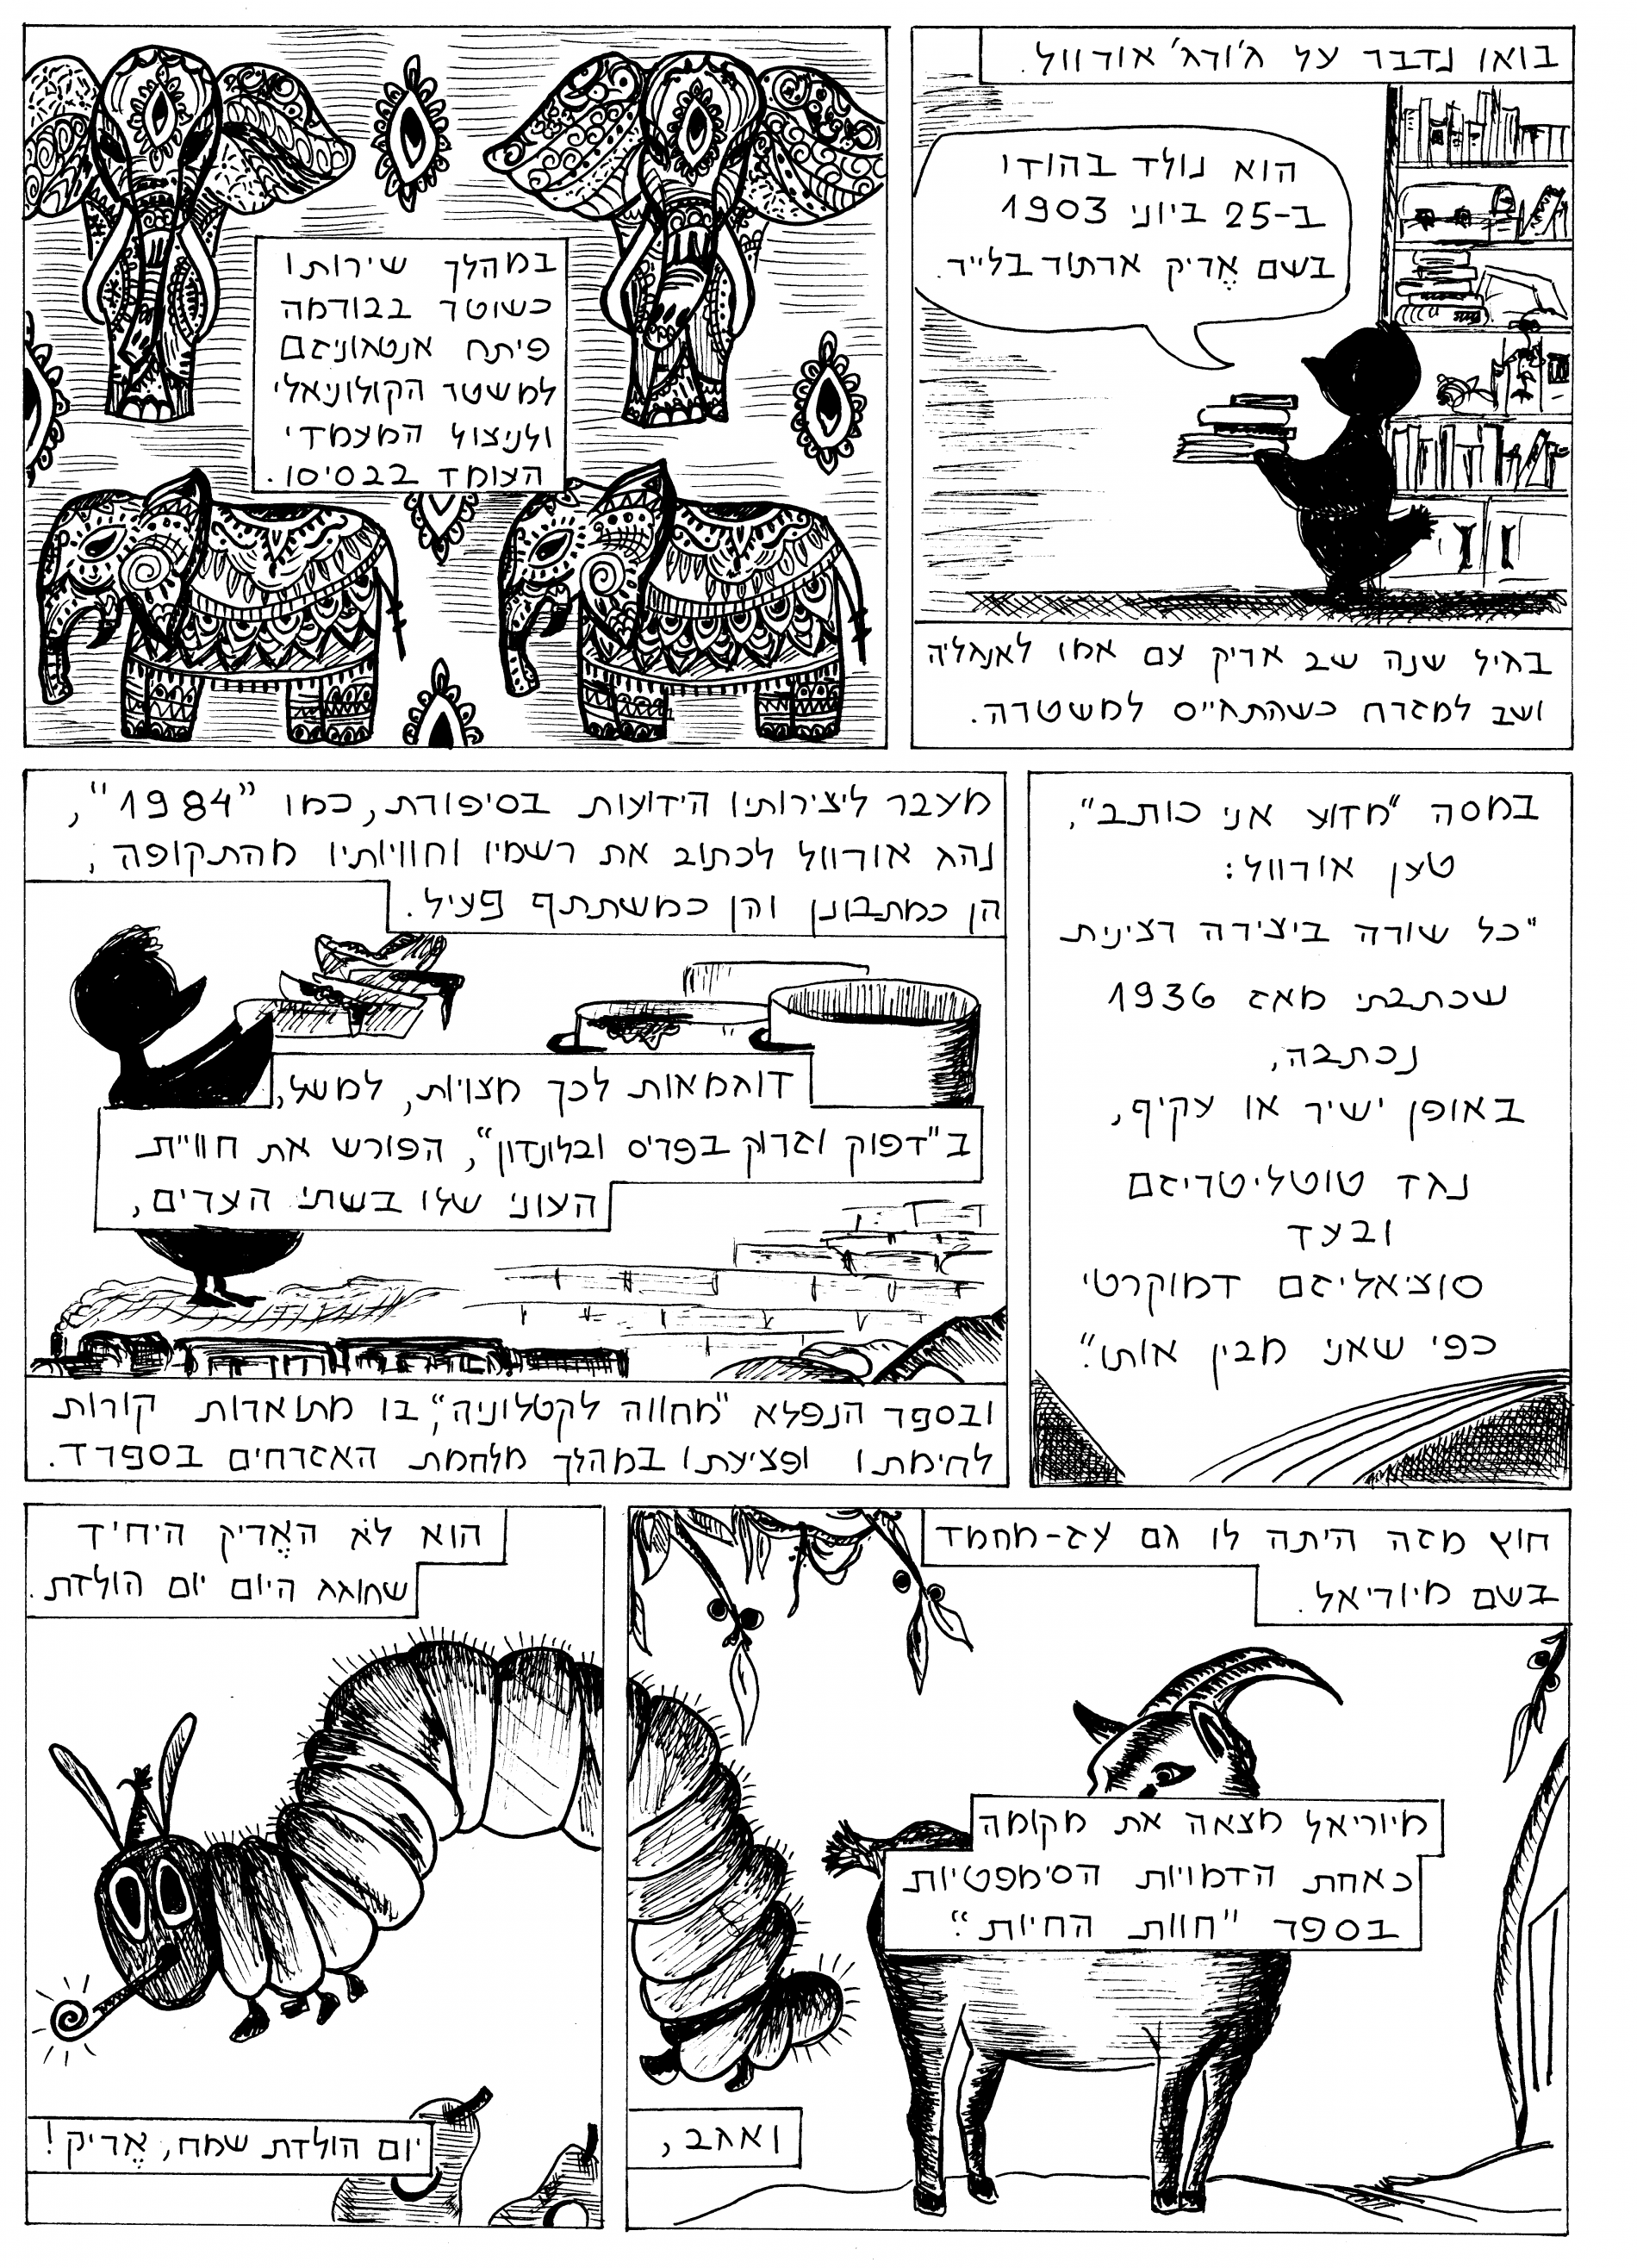 בואו נדבר על ג'ורג' אורוול.
הוא נולד בהודו
ב-25 ביוני 1903
בשם אֶריק ארתור בלייר.
בגיל שנה שב אריק עם אמו לאנגליה
ושב למזרח כשהתגייס למשטרה.
במהלך שירותו
כשוטר בבורמה
פיתח אנטגוניזם
למשטר הקולוניאלי
ולניצול המעמדי
העומד בבסיסו.
במסה "מדוע אני כותב",
טען אורוול:
"כל שורה ביצירה רצינית
שכתבתי מאז 1936
נכתבה,
באופן ישיר או עקיף,
נגד טוטליטריזם
ובעד
סוציאליזם דמוקרטי
כפי שאני מבין אותו."
מעבר ליצירותיו הידועות בסיפורת, כמו "1984",
נהג אורוול לכתוב את רשמיו וחוויותיו מהתקופה,
הן כמתבונן והן כמשתתף פעיל.
דוגמאות לכך מצויות, למשל,
ב"דפוק וזרוק בפריס ובלונדון", הפורש את חוויית
העוני שלו בשתי הערים,
ובספר הנפלא "מחווה לקטלוניה", בו מתוארות קורות
לחימתו ופציעתו במהלך מלחמת האזרחים בספרד.
חוץ מזה היתה לו גם עז-מחמד
בשם מיוריאל.
מיוריאל מצאה את מקומה
כאחת הדמויות הסימפטיות
בספר "חוות החיות".
ואגב,
הוא לא האֶריק היחיד
שחוגג היום יום הולדת.
יום הולדת שמח, אֶריק!